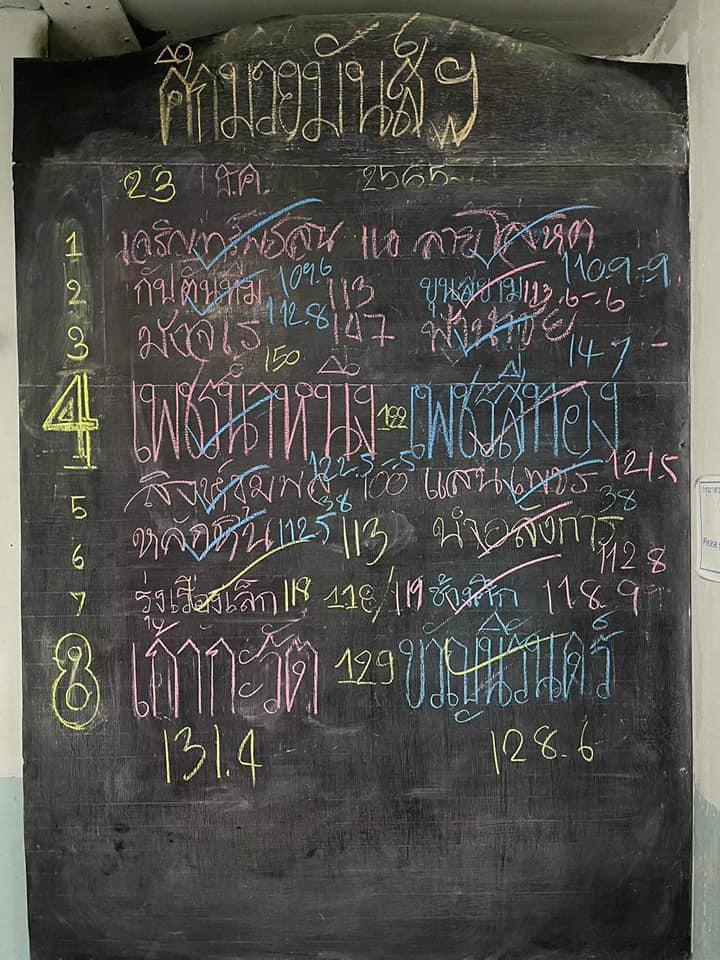 ศึกมวยมันส์ฯ
23 ธ.ค. 2565
1 เจริญทรัพย์สิน 110
2 กัปตันทีม 109.6 113 ขุนสยาม 110.9-.9
3 มังตโร 112.8 107 113.6-.6
150 147-
4 เพชรน้ำหนึ่ง 122 เพชรสีทอง
5 สิงห์ชุมพล 122.5-.5 100 แสนเพชร 121.5
6 หลักหิน 112.5 38 113 นำอลังการ 38
112.8
7 รุ่งเรืองเล็ก 118 118/119 ช้างศึก 118.9
8 เก้ากะรัต 129 ขวัญนิรันดร์
131.4 128.6